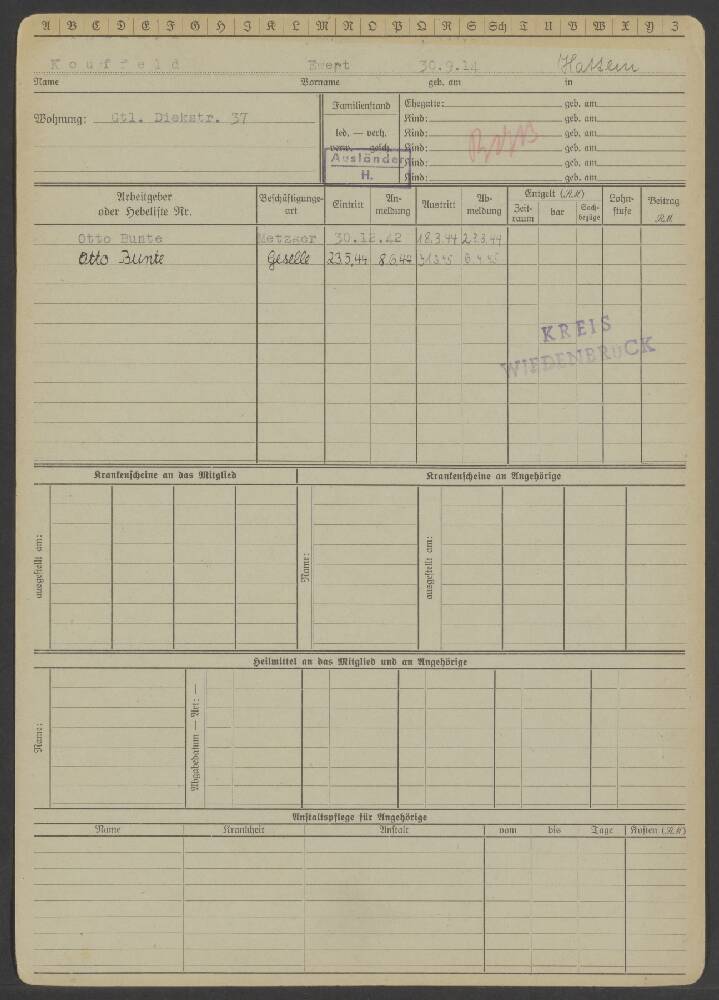 A B C D E F G H J K L M N O P Q R S Sch T U V W X Y Z
Kouffeld Ewert 30.9.14 Hattem
Name Vorname geb. am in
Wohnung: Gtl. Diekstr. 37
Familienstand
led. — verh.
verw. gesch.
Ausländer
H.
Ehegatte: geb. am
Kind: geb. am
Kind: geb. am
Kind: geb. am
Kind: geb. am
Kind: geb. am
Arbeitgeber oder Hebeliste Nr. Beschäftigungsart Eintritt Anmeldung Austritt Abmeldung Entgelt (RM) Zeitraum bar Sachbezüge Lohnstufe Beitrag RM
Otto Bunte Metzger 30.12.42 18.3.44 23.3.44
Otto Bunte Geselle 23.5.44 8.6.44 31.3.45 6.4.45
KREIS
WIEDENBRÜCK
Krankenscheine an das Mitglied Krankenscheine an Angehörige
ausgestellt am: Name: ausgestellt am:
Heilmittel an das Mitglied und an Angehörige
Name: Abgabedatum — Art: —
Anstaltspflege für Angehörige
Name Krankheit Anstalt vom bis Tage Kosten (RM)